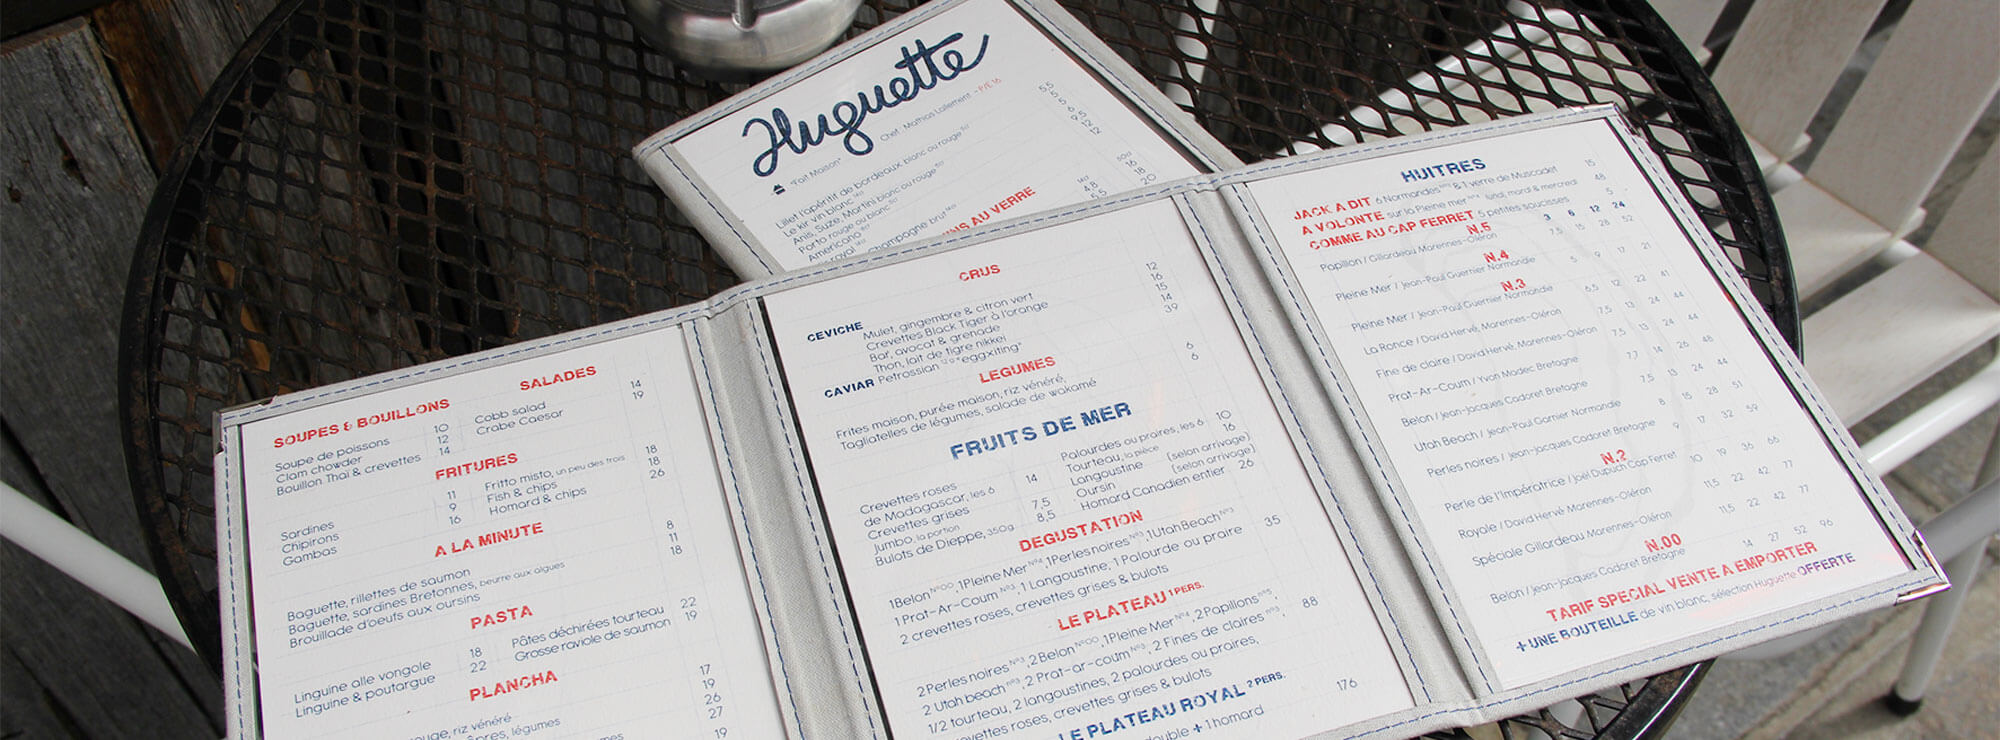 Huguette
"Fait Maison" Chef : Mathias Lallement - P/E 16
Lillet l'apéritif de bordeaux, blanc ou rouge 5,5
Le kir vin blanc 5
Anis, Suze, Martini blanc ou rouge 5
Porto rouge ou blanc 6
Americano 9
royal champagne brut 12
AU VERRE
SOUPES & BOUILLONS
Soupe de poissons 10
Clam chowder 12
Bouillon Thaï & crevettes 14
SALADES
Cobb salad 14
Crabe Caesar 19
FRITURES
Sardines 11
Chipirons 9
Gambas 16
Fritto misto, un peu des trois 18
Fish & chips 18
Homard & chips 26
A LA MINUTE
Baguette, rillettes de saumon 8
Baguette, sardines Bretonnes, beurre aux algues 11
Brouillade d'oeufs aux oursins 18
PASTA
Linguine alle vongole 18
Linguine & poutargue 22
Pâtes déchirées tourteau 22
Grosse raviole de saumon 19
PLANCHA
rouge, riz vénéré 17
légumes 19
26
27
19
CRUS
CEVICHE Mulet, gingembre & citron vert 12
Crevettes Black Tiger à l'orange 16
Bar, avocat & grenade 15
Thon, lait de tigre nikkei 14
CAVIAR Petrossian "eggxiting" 39
LEGUMES
Frites maison, purée maison, riz vénéré, 6
Tagliatelles de légumes, salade de wakamé 6
FRUITS DE MER
Crevettes roses
de Madagascar, les 6 14
Crevettes grises
Jumbo, la portion 7,5
Bulots de Dieppe, 350g 8,5
Palourdes ou praires, les 6 10
Tourteau, la pièce 16
Langoustine (selon arrivage)
Oursin (selon arrivage)
Homard Canadien entier 26
DEGUSTATION
1 Belon N°00, 1 Pleine Mer N°4, 1 Perles noires N°3, 1 Utah Beach N°3 35
1 Prat-Ar-Coum N°3, 1 Langoustine, 1 Palourde ou praire
2 crevettes roses, crevettes grises & bulots
LE PLATEAU 1 PERS.
2 Perles noires N°3, 2 Belon N°00, 1 Pleine Mer N°4, 2 Papillons N°5, 88
2 Utah beach N°3, 2 Prat-ar-coum N°3, 2 Fines de claires N°3,
1/2 tourteau, 2 langoustines, 2 palourdes ou praires,
crevettes roses, crevettes grises & bulots
LE PLATEAU ROYAL 2 PERS. 176
double + 1 homard
HUITRES
JACK A DIT 6 Normandes & 1 verre de Muscadet 15
A VOLONTE sur la Pleine mer N°4 lundi, mardi & mercredi 48
COMME AU CAP FERRET 5 petites saucisses 5
3 6 12 24
N.5
Papillon / Gillardeau Marennes-Oléron 7,5 15 28 52
N.4
Pleine Mer / Jean-Paul Guernier Normandie 5 9 17 21
N.3
Pleine Mer / Jean-Paul Guernier Normandie 6,5 12 22 41
La Ronce / David Hervé, Marennes-Oléron 7,5 13 24 44
Fine de claire / David Hervé, Marennes-Oléron 7,5 13 24 44
Prat-Ar-Coum / Yvon Madec Bretagne 7,7 14 26 48
Belon / Jean-Jacques Cadoret Bretagne 7,5 13 24 44
Utah Beach / Jean-Paul Garnier Normandie 8 15 28 51
Perles noires / Jean-Jacques Cadoret Bretagne 9 17 32 59
N.2
Perle de l'Impératrice / Joël Dupuch Cap Ferret 10 19 36 66
Royale / David Hervé Marennes-Oléron 11,5 22 42 77
Spéciale Gillardeau Marennes-Oléron 11,5 22 42 77
N.00
Belon / Jean-Jacques Cadoret Bretagne 14 27 52 96
TARIF SPECIAL VENTE A EMPORTER
+ UNE BOUTEILLE de vin blanc, sélection Huguette OFFERTE